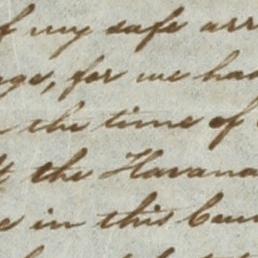 of my safe arr
ge, for we had
the time of
the Havana
e in this Coun